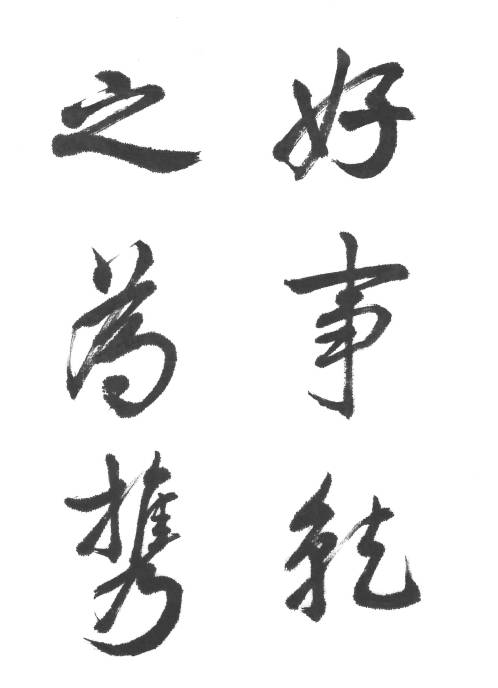 好事就
之為携